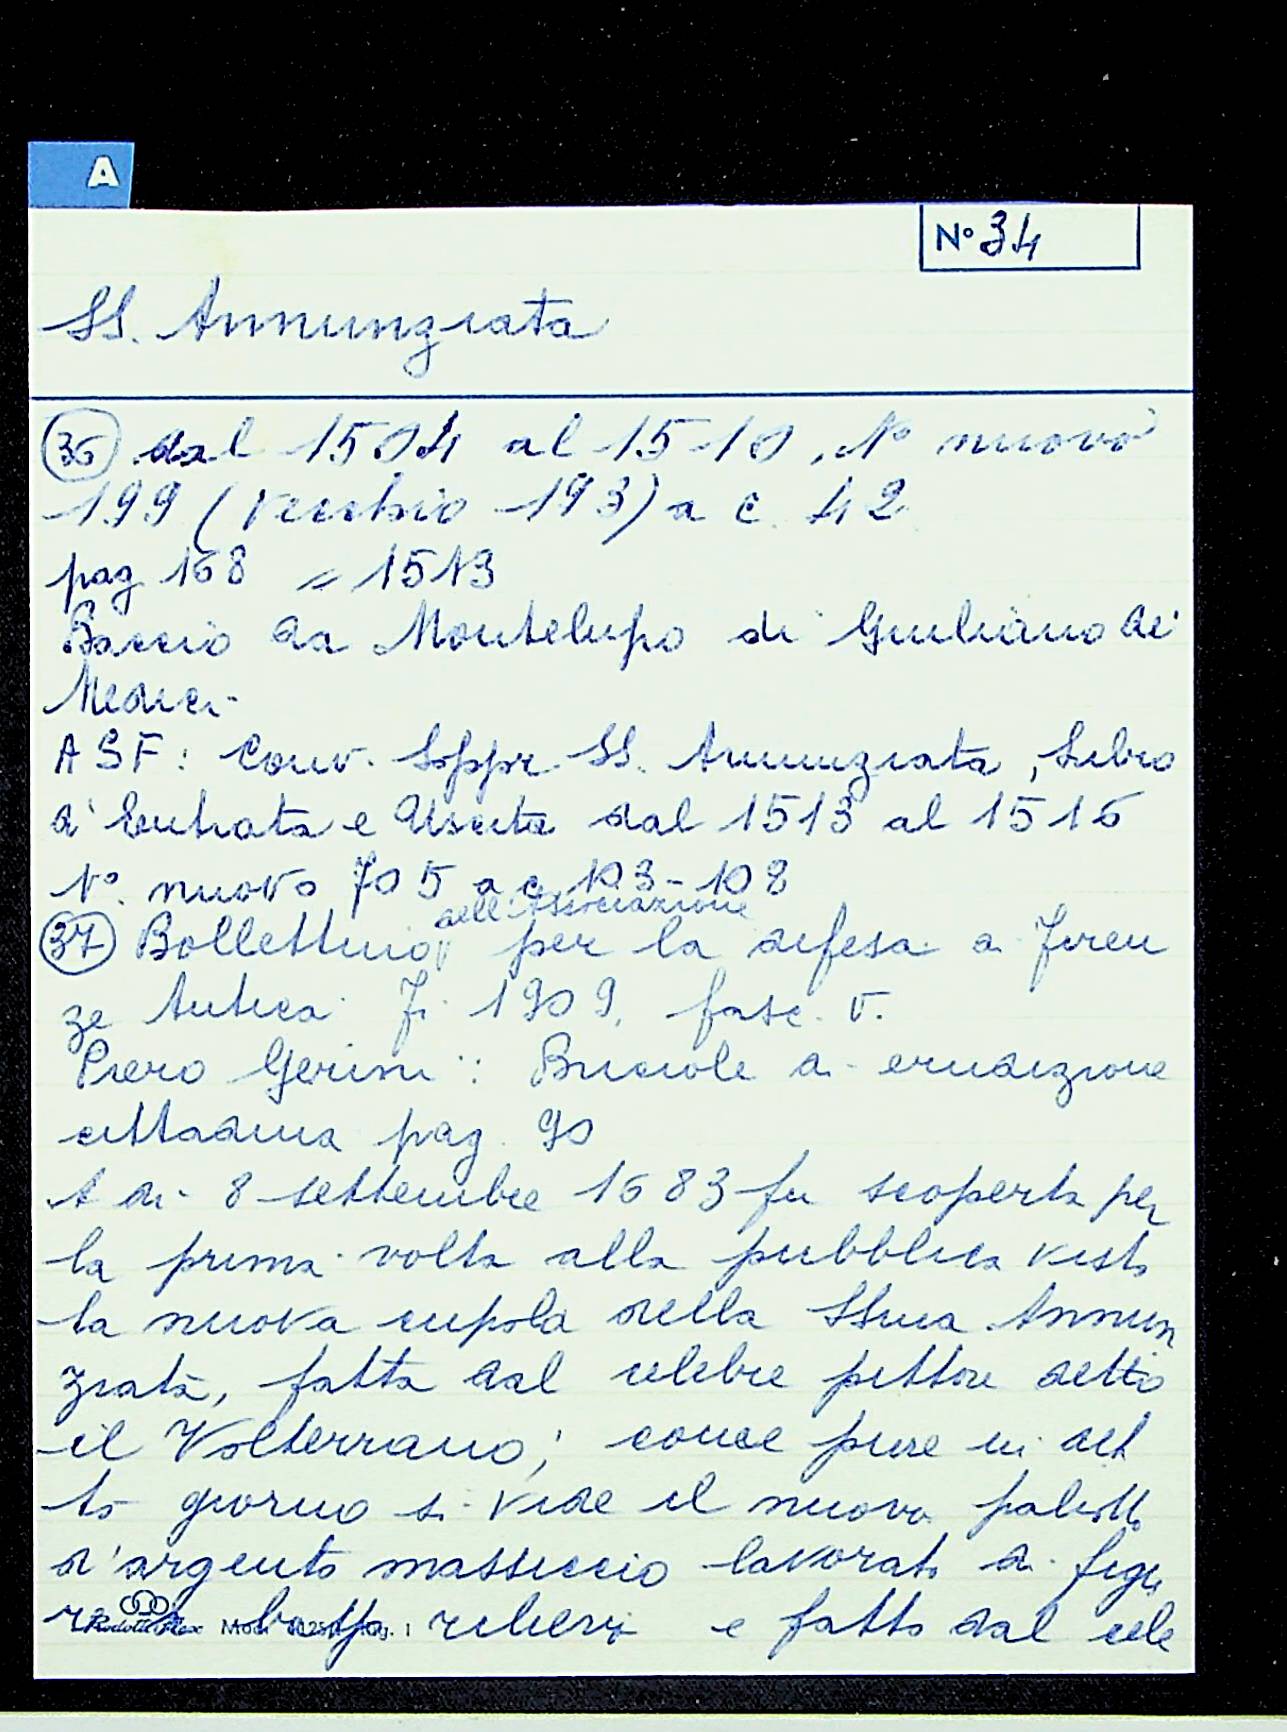 A
N° 34
SS. Annunziata
36 dal 1504 al 1510, N° nuovo
199 (vecchio 193) a c. 42
pag 168 = 1513
Baccio da Montelupo di Giuliano de'
Medici -
ASF: Conv. Soppr. SS. Annunziata, Libro
d'Entrata e Uscita dal 1513 al 1516
N°. nuovo 705 a c. 103-108
dell'Associazione
37 Bollettino per la difesa di Firen
ze Antica Fi 1909, fasc. V.
Piero Gerini: Briciole di erudizione
cittadina pag. 90
A di 8 settembre 1683 fu scoperta per
la prima volta alla pubblica vista
la nuova cupola della SSma Annun
ziata, fatta dal celebre pittore detto
il Volterrano; come pure in det
to giorno si vide il nuovo paliotto
d'argento massiccio lavorato di figu
re di basso rilievo e fatto dal cele